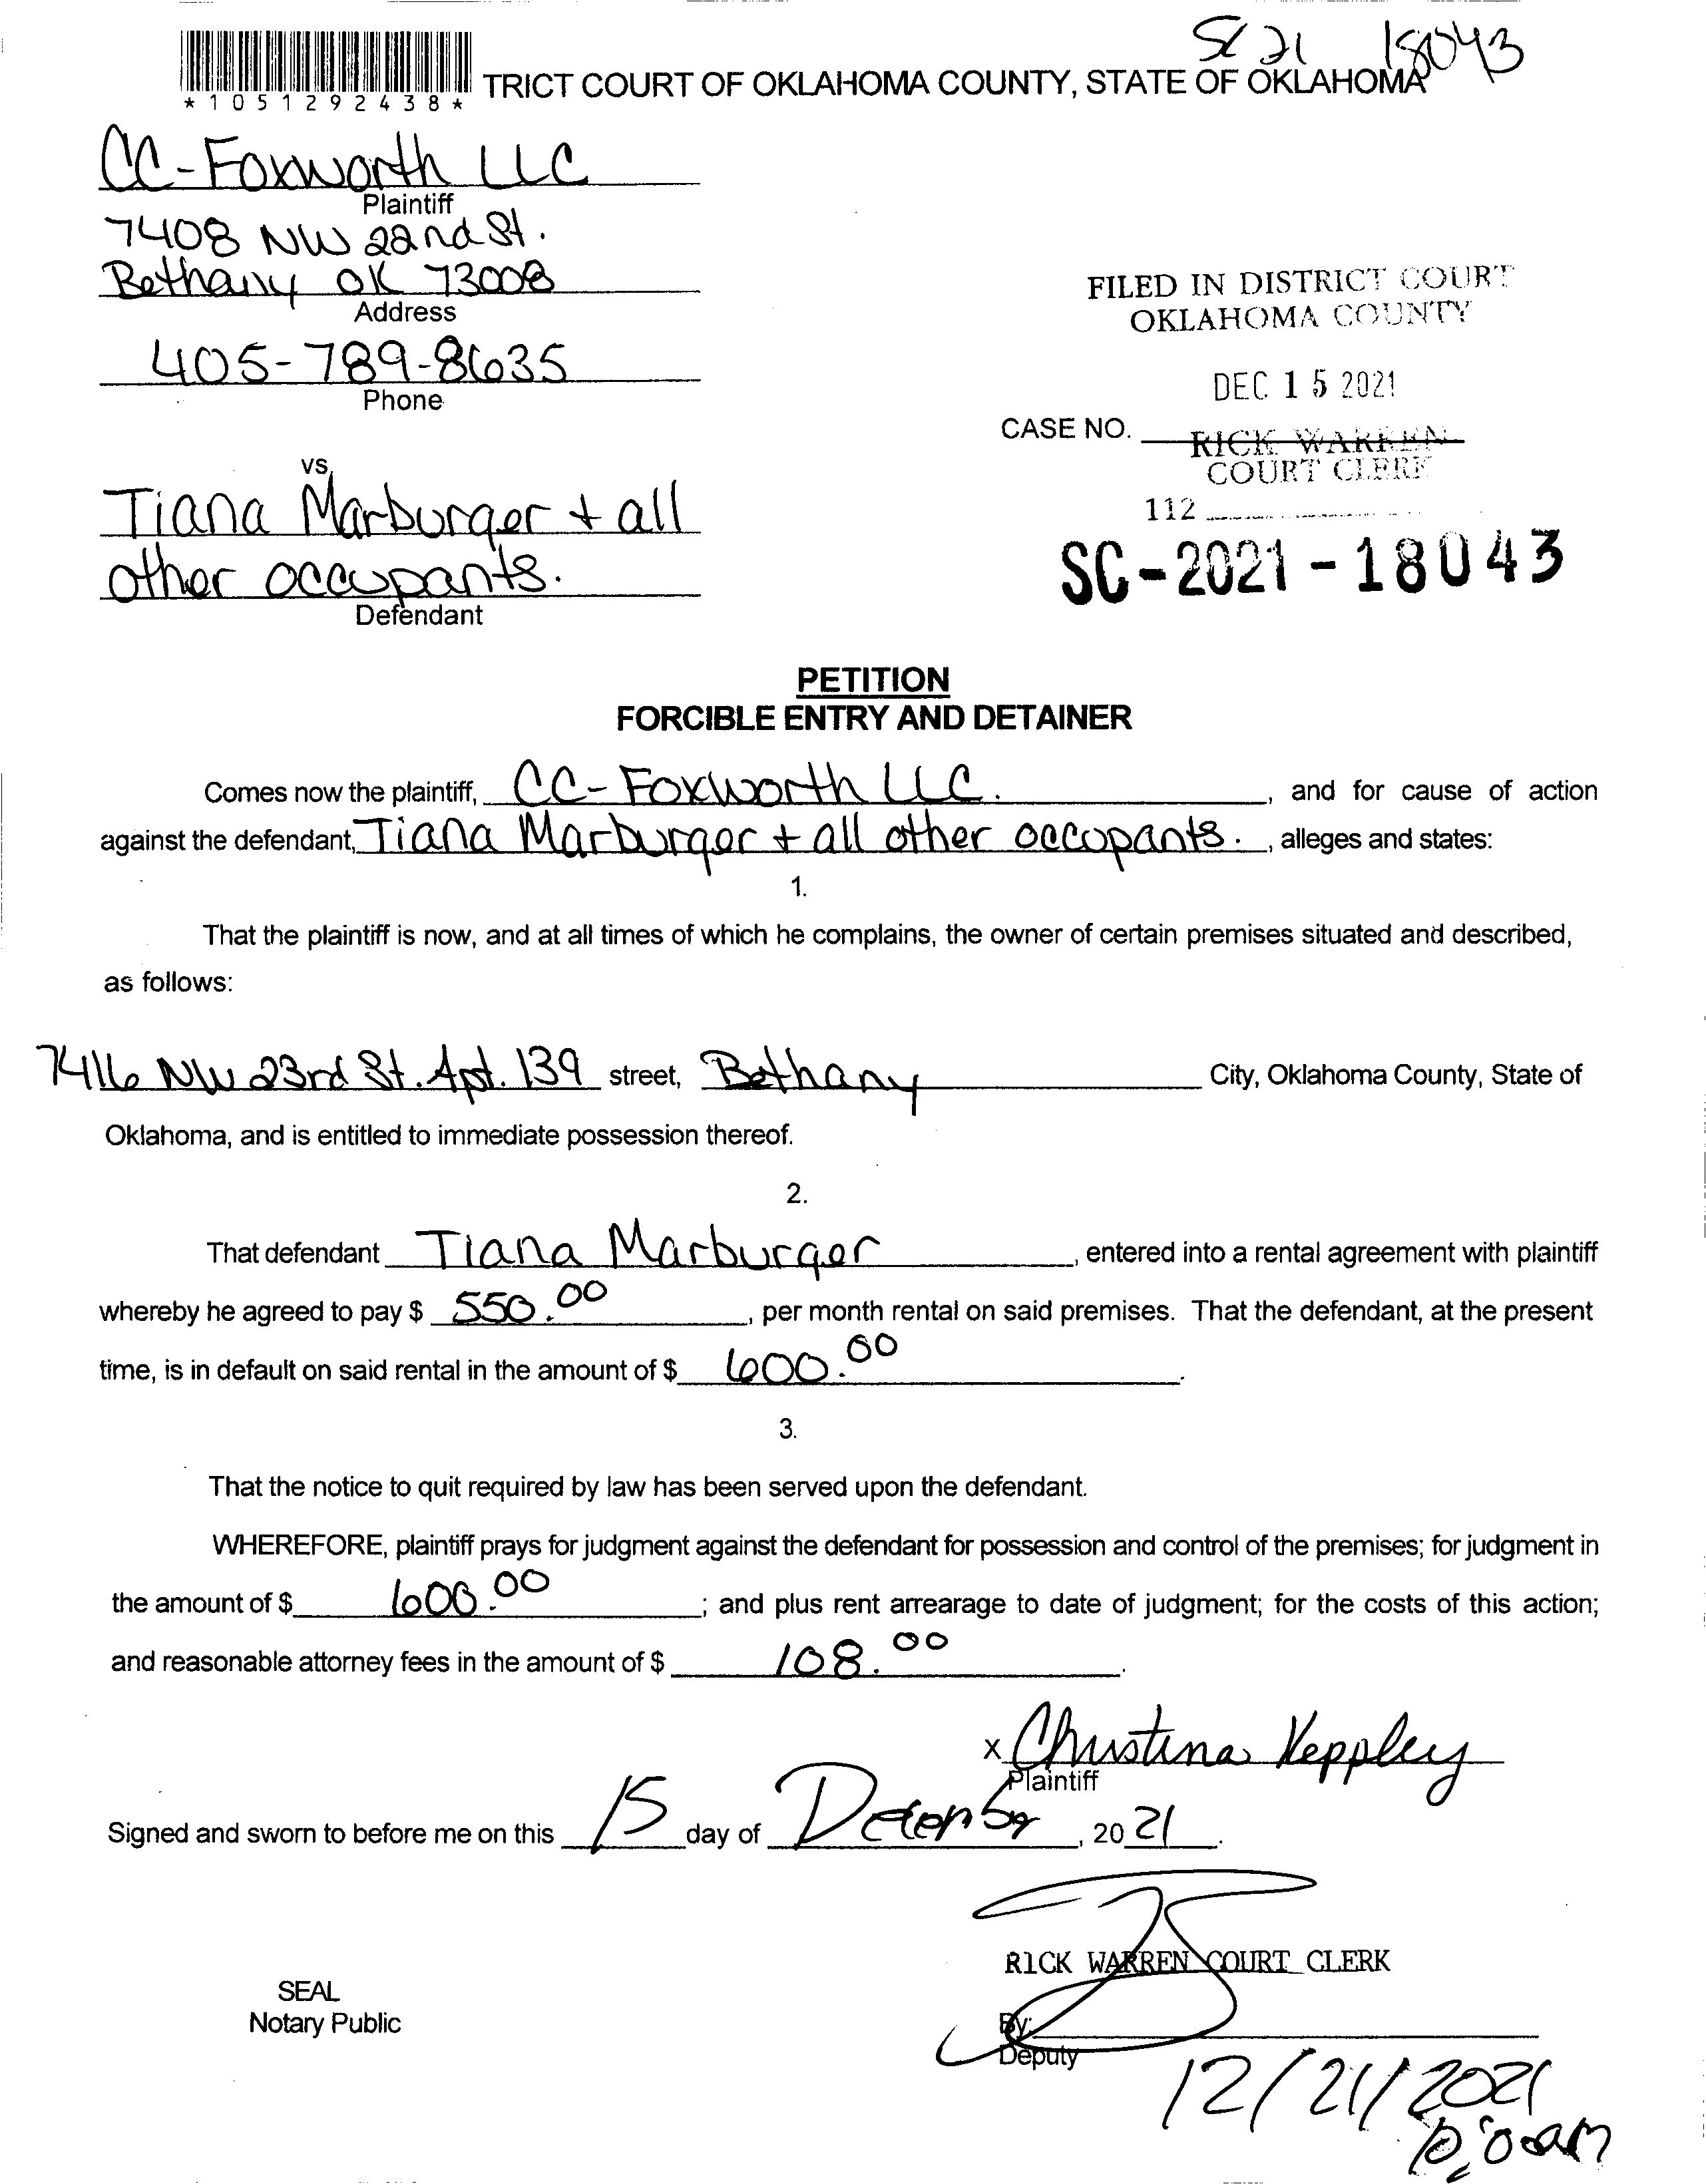 SC 21 18043
*1051292438*
TRICT COURT OF OKLAHOMA COUNTY, STATE OF OKLAHOMA
CC-Foxworth LLC
Plaintiff
7408 NW 22nd St.
Bethany OK 73008
Address
405-789-8635
Phone
FILED IN DISTRICT COURT
OKLAHOMA COUNTY
DEC 15 2021
CASE NO.
RICK WARREN
COURT CLERK
112
SC-2021-18043
vs.
Tiana Marburger + all
other occupants.
Defendant
PETITION
FORCIBLE ENTRY AND DETAINER
Comes now the plaintiff, CC-Foxworth LLC. , and for cause of action
against the defendant, Tiana Marburger + all other occupants. , alleges and states:
1.
That the plaintiff is now, and at all times of which he complains, the owner of certain premises situated and described,
as follows:
7416 NW 23rd St. Apt. 139 street, Bethany City, Oklahoma County, State of
Oklahoma, and is entitled to immediate possession thereof.
2.
That defendant Tiana Marburger , entered into a rental agreement with plaintiff
whereby he agreed to pay $ 550.00 , per month rental on said premises. That the defendant, at the present
time, is in default on said rental in the amount of $ 600.00 .
3.
That the notice to quit required by law has been served upon the defendant.
WHEREFORE, plaintiff prays for judgment against the defendant for possession and control of the premises; for judgment in
the amount of $ 600.00 ; and plus rent arrearage to date of judgment; for the costs of this action;
and reasonable attorney fees in the amount of $ 108.00 .
x Christina Keppley
Plaintiff
Signed and sworn to before me on this 15 day of December , 20 21 .
RICK WARREN COURT CLERK
SEAL
Notary Public
By:
Deputy
12/21/2021